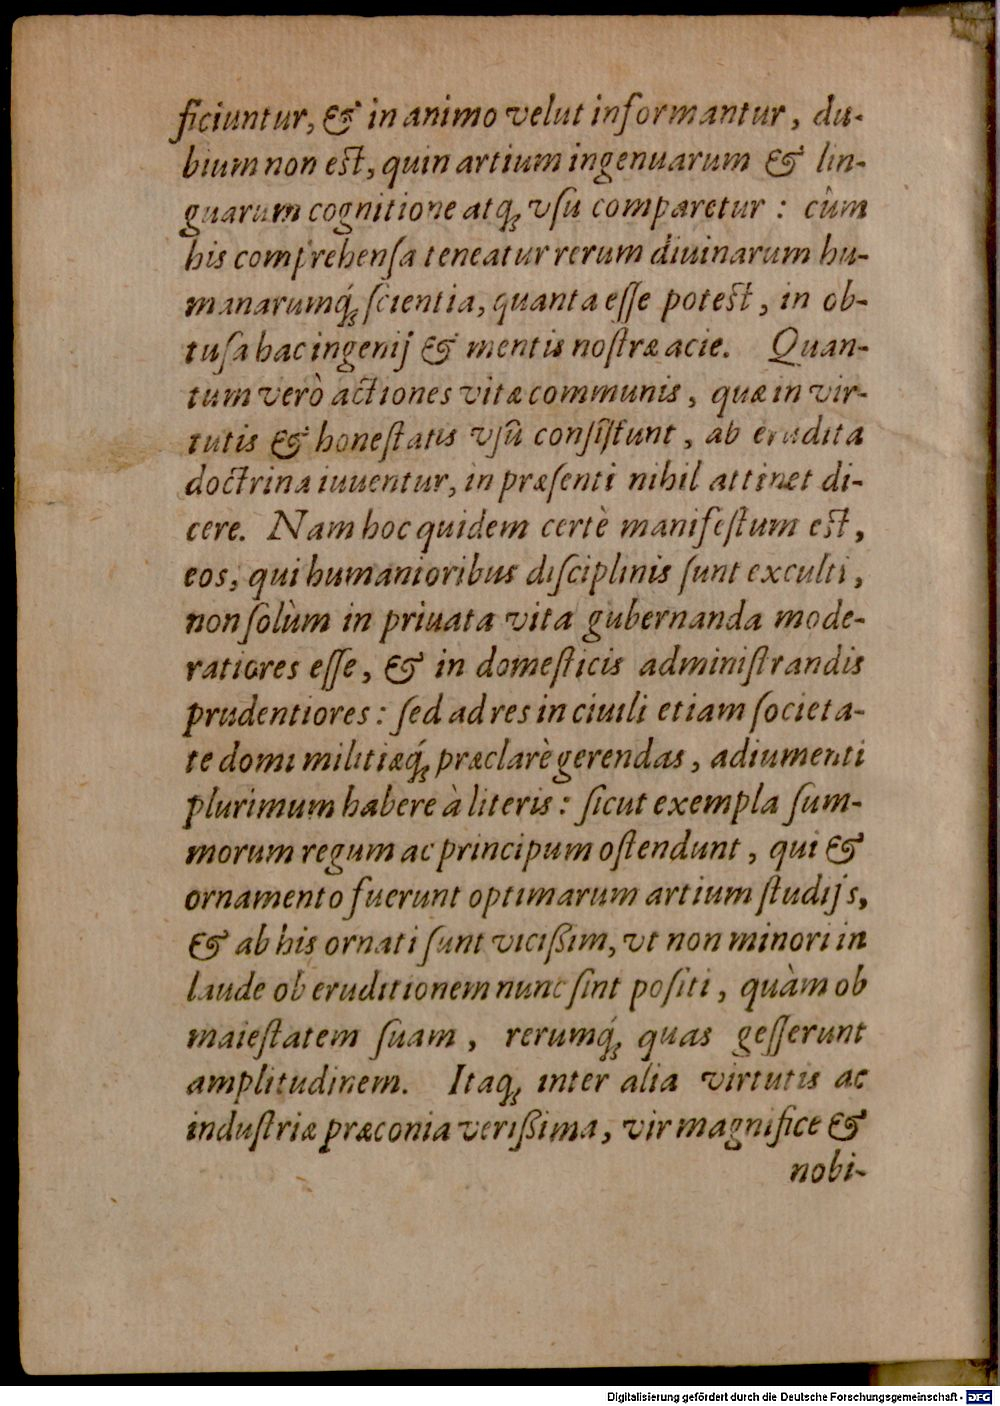 ficiuntur, & in animo velut informantur, du-
bium non est, quin artium ingenuarum & lin-
guarum cognitione atq́; vſu comparetur : cùm
his comprehenſa teneatur rerum diuinarum hu-
manarumq́; ſcientia, quanta eſſe potest, in ob-
tuſa hac ingenij & mentis noſtræ acie. Quan-
tum verò actiones vitæ communis, quæ in vir-
tutis & honeſtatis vſũ conſiſtunt, ab erudita
doctrina iuuentur, in præſenti nihil attinet di-
cere. Nam hoc quidem certè manifeſtum est,
eos, qui humanioribus diſciplinis ſunt exculti,
non ſolùm in priuata vita gubernanda mode-
ratiores eſſe, & in domeſticis adminiſtrandis
prudentiores : ſed ad res in ciuili etiam ſocieta-
te domi militiæq́; præclarè gerendas, adiumenti
plurimum habere à literis : ſicut exempla ſum-
morum regum ac principum oſtendunt, qui &
ornamento fuerunt optimarum artium ſtudijs,
& ab his ornati ſunt vicißim, vt non minori in
laude ob eruditionem nunc ſint poſiti, quàm ob
maieſtatem ſuam, rerumq́; quas geſſerunt
amplitudinem. Itaq; inter alia virtutis ac
induſtriæ præconia verißima, vir magnifice &
nobi-
Digitalisierung gefördert durch die Deutsche Forschungsgemeinschaft - DFG